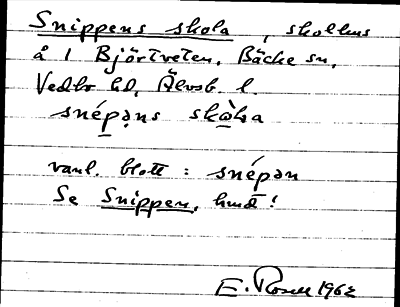 Snippens skola, skollens
å 1 Björtveten, Bäcke sn,
Vedbo hd, Älvsb. l.
snépəns skωla
vanl. blott : snépən
Se Snippen, hmd!
E. Rosell 1962